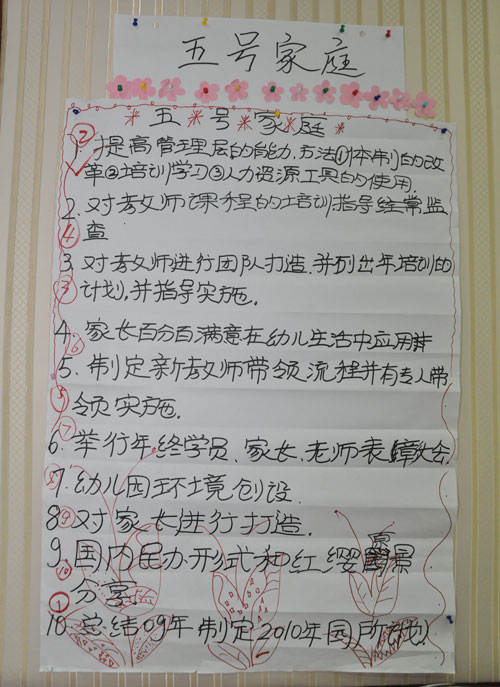 五号家庭
五号家庭
② 1 提高管理层的能力.方法①体制的改
革②培训学习③人力资源工具的使用.
2. 对教师课程的培训指导经常监
④ 查
3. 对教师进行团队打造.并列出年培训的
③ 计划.并指导实施.
4. ⑥ 家长百分百满意在幼儿生活中应用
5. 制定新教师带领流程并有专人带
⑤ 领实施.
⑦
6. 举行年终学员、家长、老师表障大会
⑧ 7. 幼儿园环境创设.
8. ⑨ 对家长进行打造.
9. ⑩ 国内民办形式和红缨愿景
分享
①
10. 总结09年制定2010年园所计划